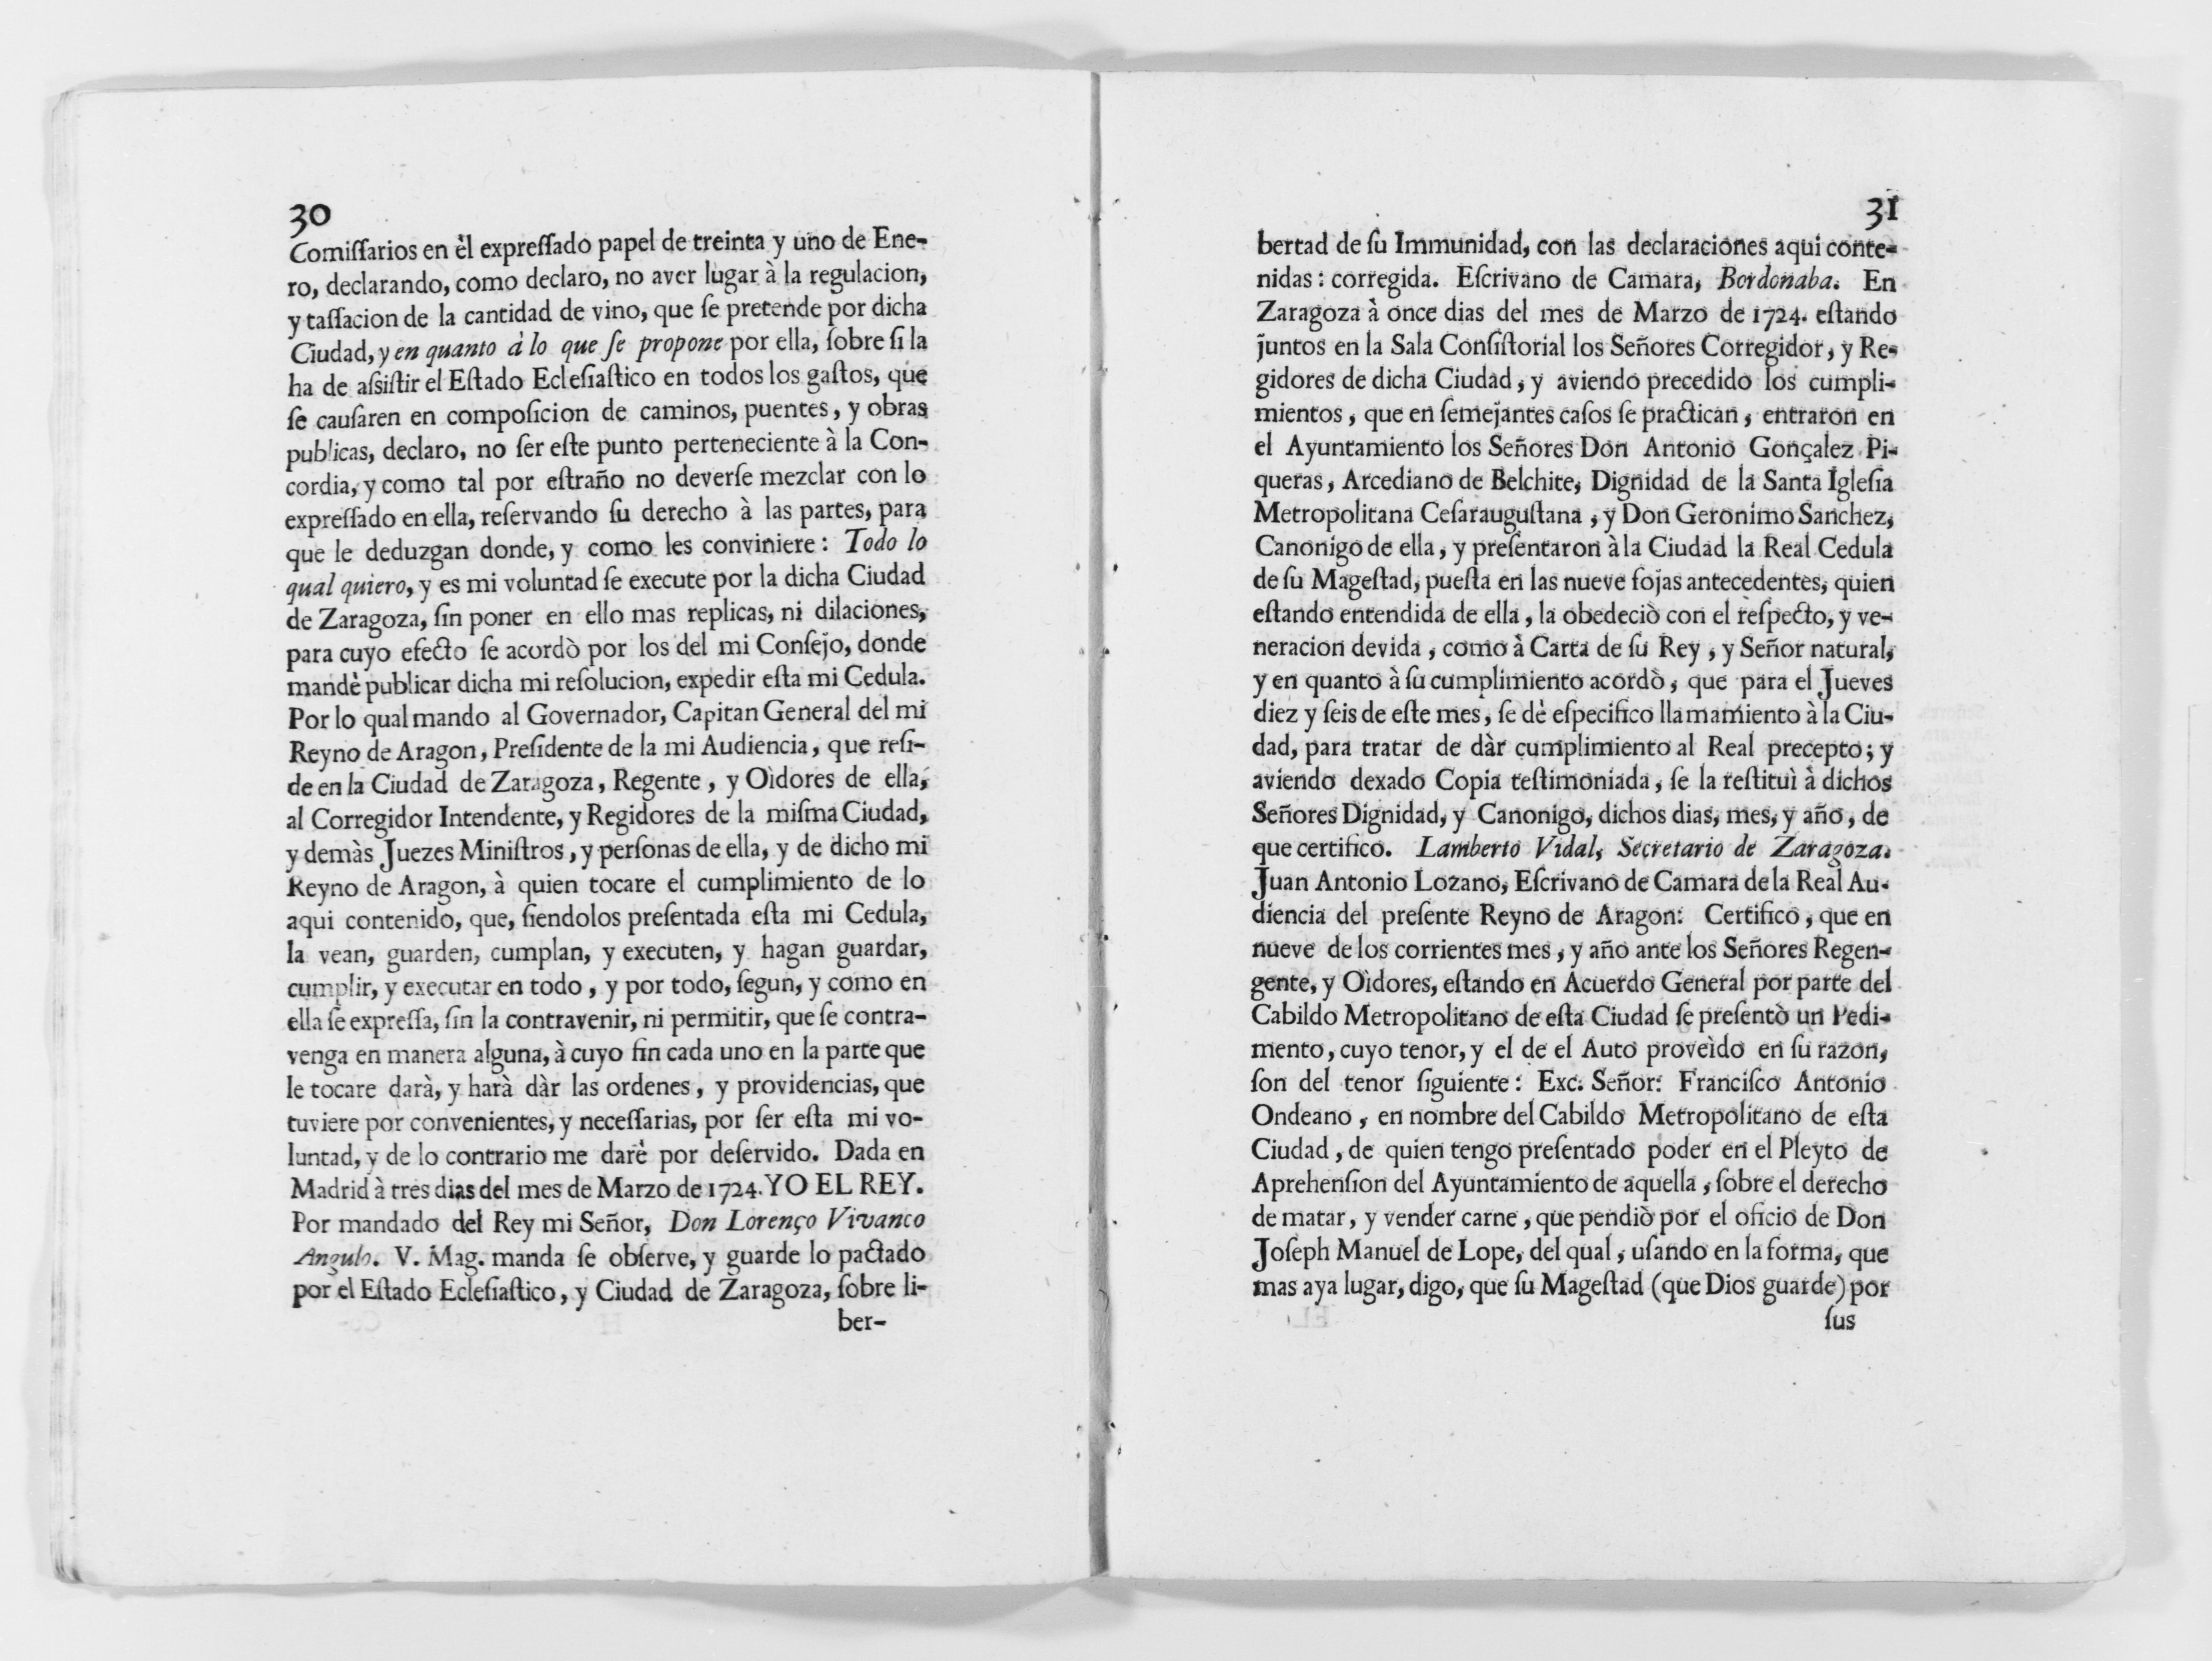 30
Comiſſarios en èl expreſſado papel de treinta y uno de Ene-
ro, declarando, como declaro, no aver lugar à la regulacion,
y taſſacion de la cantidad de vino, que ſe pretende por dicha
Ciudad, y en quanto à lo que ſe propone por ella, ſobre ſi la
ha de aſsiſtir el Eſtado Ecleſiaſtico en todos los gaſtos, que
ſe cauſaren en compoſicion de caminos, puentes, y obras
publicas, declaro, no ſer eſte punto perteneciente à la Con-
cordia, y como tal por eſtraño no deverſe mezclar con lo
expreſſado en ella, reſervando ſu derecho à las partes, para
que le deduzgan donde, y como les conviniere: Todo lo
qual quiero, y es mi voluntad ſe execute por la dicha Ciudad
de Zaragoza, ſin poner en ello mas replicas, ni dilaciones,
para cuyo efecto ſe acordò por los del mi Conſejo, donde
mandè publicar dicha mi reſolucion, expedir eſta mi Cedula.
Por lo qual mando al Governador, Capitan General del mi
Reyno de Aragon, Preſidente de la mi Audiencia, que reſi-
de en la Ciudad de Zaragoza, Regente, y Oìdores de ella,
al Corregidor Intendente, y Regidores de la miſma Ciudad,
y demàs Juezes Miniſtros, y perſonas de ella, y de dicho mi
Reyno de Aragon, à quien tocare el cumplimiento de lo
aqui contenido, que, ſiendolos preſentada eſta mi Cedula,
la vean, guarden, cumplan, y executen, y hagan guardar,
cumplir, y executar en todo, y por todo, ſegun, y como en
ella ſe expreſſa, ſin la contravenir, ni permitir, que ſe contra-
venga en manera alguna, à cuyo fin cada uno en la parte que
le tocare darà, y harà dàr las ordenes, y providencias, que
tuviere por convenientes, y neceſſarias, por ſer eſta mi vo-
luntad, y de lo contrario me darè por deſervido. Dada en
Madrid à tres dias del mes de Marzo de 1724. YO EL REY.
Por mandado del Rey mi Señor, Don Lorenço Vivanco
Angulo. V. Mag. manda ſe obſerve, y guarde lo pactado
por el Eſtado Ecleſiaſtico, y Ciudad de Zaragoza, ſobre li-
ber-
31
bertad de ſu Immunidad, con las declaraciones aqui conte-
nidas: corregida. Eſcrivano de Camara, Bordonaba. En
Zaragoza à once dias del mes de Marzo de 1724. eſtando
juntos en la Sala Conſiſtorial los Señores Corregidor, y Re-
gidores de dicha Ciudad, y aviendo precedido los cumpli-
mientos, que en ſemejantes caſos ſe practican, entraron en
el Ayuntamiento los Señores Don Antonio Gonçalez Pi-
queras, Arcediano de Belchite, Dignidad de la Santa Igleſia
Metropolitana Ceſarauguſtana, y Don Geronimo Sanchez,
Canonigo de ella, y preſentaron à la Ciudad la Real Cedula
de ſu Mageſtad, pueſta en las nueve fojas antecedentes, quien
eſtando entendida de ella, la obedeciò con el reſpecto, y ve-
neracion devida, como à Carta de ſu Rey, y Señor natural,
y en quanto à ſu cumplimiento acordò, que para el Jueves
diez y ſeis de eſte mes, ſe dè eſpecifico llamamiento à la Ciu-
dad, para tratar de dàr cumplimiento al Real precepto; y
aviendo dexado Copia teſtimoniada, ſe la reſtituì à dichos
Señores Dignidad, y Canonigo, dichos dias, mes, y año, de
que certifico. Lamberto Vidal, Secretario de Zaragoza.
Juan Antonio Lozano, Eſcrivano de Camara de la Real Au-
diencia del preſente Reyno de Aragon: Certifico, que en
nueve de los corrientes mes, y año ante los Señores Regen-
gente, y Oìdores, eſtando en Acuerdo General por parte del
Cabildo Metropolitano de eſta Ciudad ſe preſentò un Pedi-
mento, cuyo tenor, y el de el Auto proveìdo en ſu razon,
ſon del tenor ſiguiente: Exc. Señor: Franciſco Antonio
Ondeano, en nombre del Cabildo Metropolitano de eſta
Ciudad, de quien tengo preſentado poder en el Pleyto de
Aprehenſion del Ayuntamiento de aquella, ſobre el derecho
de matar, y vender carne, que pendiò por el oficio de Don
Joſeph Manuel de Lope, del qual, uſando en la forma, que
mas aya lugar, digo, que ſu Mageſtad (que Dios guarde) por
ſus